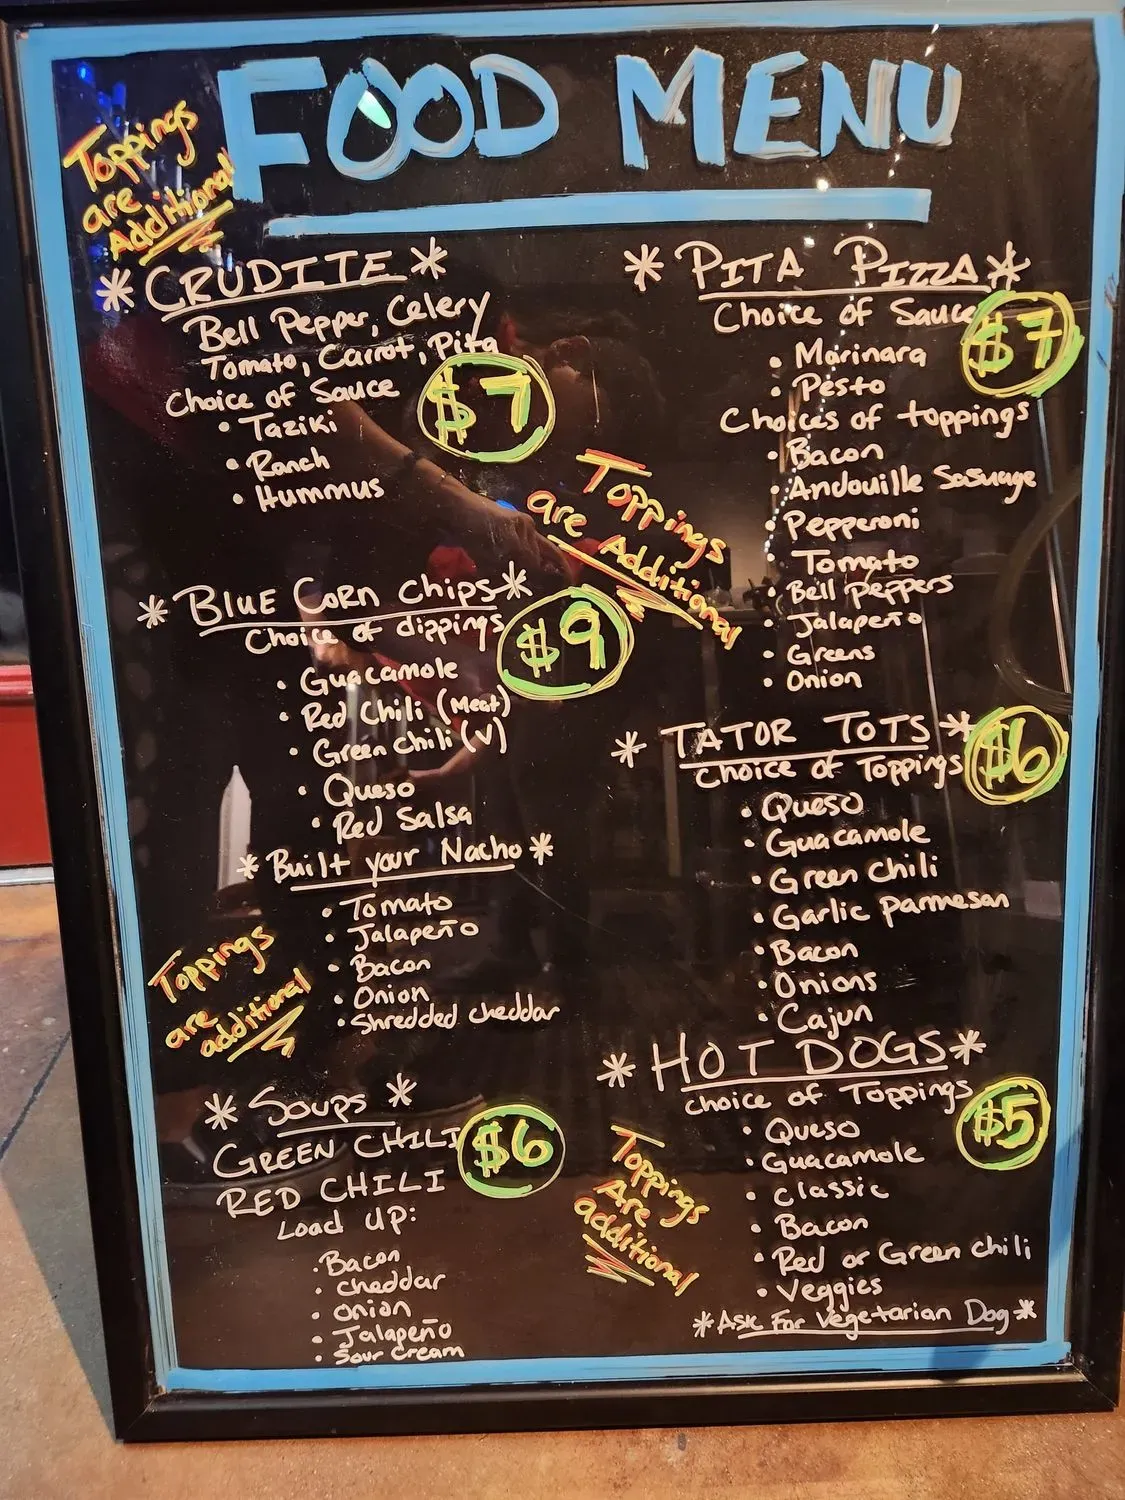 FOOD MENU
Toppings
are
Additional
*CRUDITE*
Bell Pepper, Celery
Tomato, Carrot, Pita
Choice of Sauce
$7
• Taziki
• Ranch
• Hummus
Toppings
are Additional
* BLUE CORN Chips*
Choice of dippings
$9
• Guacamole
• Red Chili (Meat)
• Green Chili (V)
• Queso
• Red Salsa
* Built your Nacho *
• Tomato
• Jalapeño
• Bacon
• Onion
• Shredded cheddar
Toppings
are
additional
* Soups *
GREEN CHILI
$6
RED CHILI
Load UP:
• Bacon
• cheddar
• onion
• Jalapeño
• Sour cream
* PITA PIZZA*
Choice of Sauce
$7
• Marinara
• Pesto
Choices of toppings
• Bacon
• Andouille Sasuage
• Pepperoni
• Tomato
• Bell peppers
• Jalapeño
• Greens
• Onion
* TATOR TOTS *
$6
Choice of Toppings
• Queso
• Guacamole
• Green Chili
• Garlic parmesan
• Bacon
• Onions
• Cajun
* HOT DOGS*
choice of Toppings
$5
• Queso
• Guacamole
• Classic
• Bacon
• Red or Green chili
• Veggies
*Ask For Vegetarian Dog*
Toppings
Are
additional